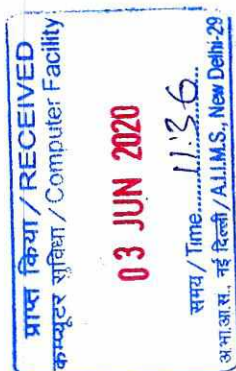 प्राप्त किया / RECEIVED
कम्प्यूटर सुविधा / Computer Facility
03 JUN 2020
समय / Time..........11:36..
अ.भा.आ.सं., नई दिल्ली / A.I.I.M.S., New Delhi-29